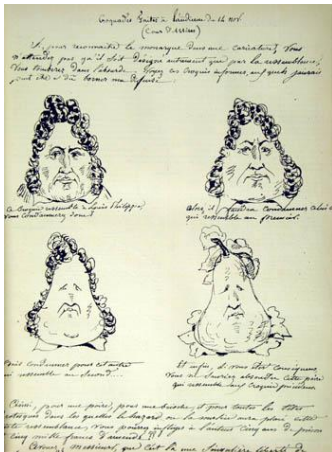 Croquades faites à l'audience du 14 nov.
(Cour d'Assises)
Si, pour reconnaître le monarque dans une caricature, vous
n'attendez pas qu'il soit désigné autrement que par la ressemblance,
vous tomberez dans l'absurde. Voyez ces croquis informes, auxquels j'aurais
peut-être dû borner ma défense.
Ce croquis ressemble à Louis Philippe,
vous condamnerez donc ?
Alors il faudra condamner celui-ci
qui ressemble au premier.
Puis condamner pour cet autre
qui ressemble au second...
Et enfin, si vous êtes conséquens
vous ne sauriez absoudre cette poire
qui ressemble aux croquis précédens.
Ainsi, pour une poire, pour une brioche, et pour toutes les têtes
grotesques dans lesquelles le hazard ou la malice aura placé cette
triste ressemblance, vous pourrez infliger à l'auteur cinq ans de prison
et cinq mille francs d'amende !!
Avouez, messieurs, que c'est là une singulière liberté de